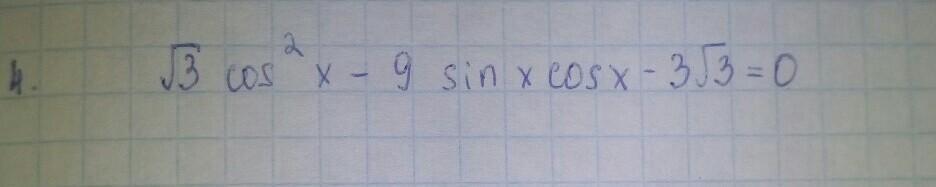 4. √3 cos² x - 9 sin x cos x - 3√3 = 0